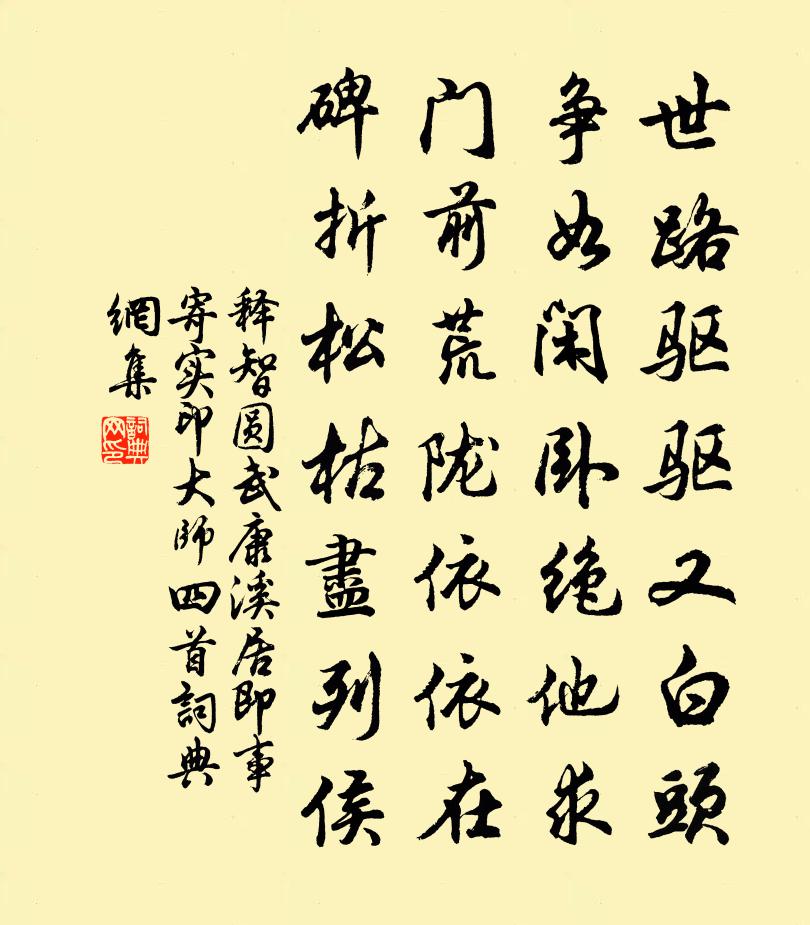 世路驱驱又白頭
争如闲卧绝他求
门前荒陇依依在
碑折松枯盡列侯
释智圆武康溪居即事
寄实印大师四首詞典
網集
詞典
网印